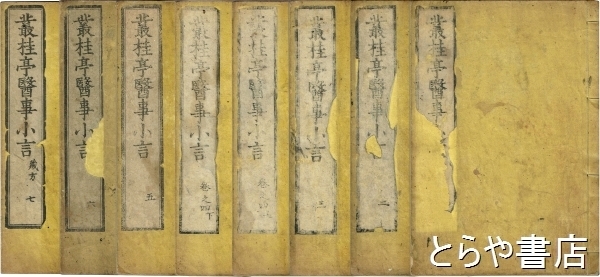 叢桂亭醫事小言
叢桂亭醫事小言
二
叢桂亭醫事小言
三
叢桂亭醫事小言
叢桂亭醫事小言
卷之四下
叢桂亭醫事小言
五
叢桂亭醫事小言
六
叢桂亭醫事小言
藏方 七
とらや書店